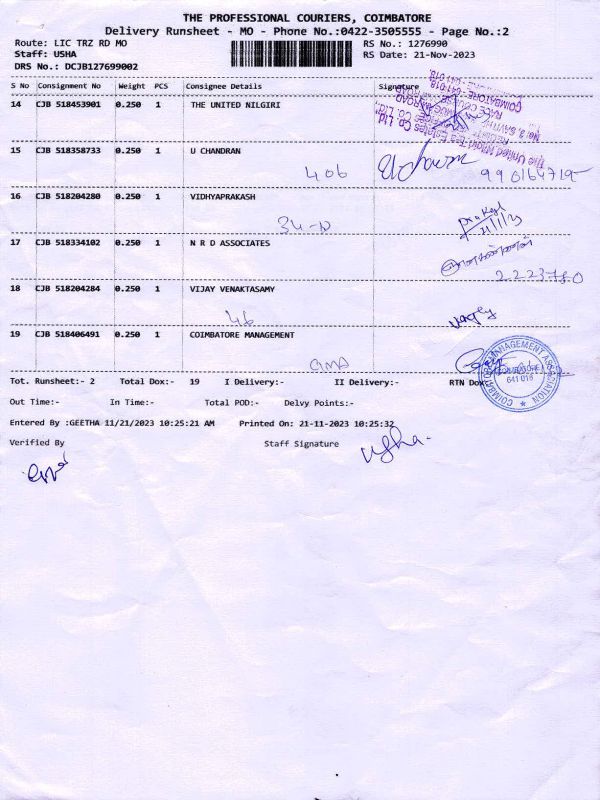 THE PROFESSIONAL COURIERS, COIMBATORE
Delivery Runsheet - MO - Phone No.:0422-3505555 - Page No.:2
Route: LIC TRZ RD MO RS No.: 1276990
Staff: USHA RS Date: 21-Nov-2023
DRS No.: DCJB127699002
S No Consignment No Weight PCS Consignee Details Signature
14 CJB 518453901 0.250 1 THE UNITED NILGIRI
The United Nilgiri Tea Estates Co. Ltd.
15 CJB 518358733 0.250 1 U CHANDRAN
406
16 CJB 518204280 0.250 1 VIDHYAPRAKASH
34-D
17 CJB 518334102 0.250 1 N R D ASSOCIATES
2223780
18 CJB 518204284 0.250 1 VIJAY VENAKTASAMY
46
19 CJB 518406491 0.250 1 COIMBATORE MANAGEMENT
CMA
COIMBATORE MANAGEMENT ASSOCIATION
COIMBATORE
641 018
Tot. Runsheet:- 2 Total Dox:- 19 I Delivery:- II Delivery:- RTN Dox:
Out Time:- In Time:- Total POD:- Delvy Points:-
Entered By :GEETHA 11/21/2023 10:25:21 AM Printed On: 21-11-2023 10:25:32
Verified By Staff Signature
usha.